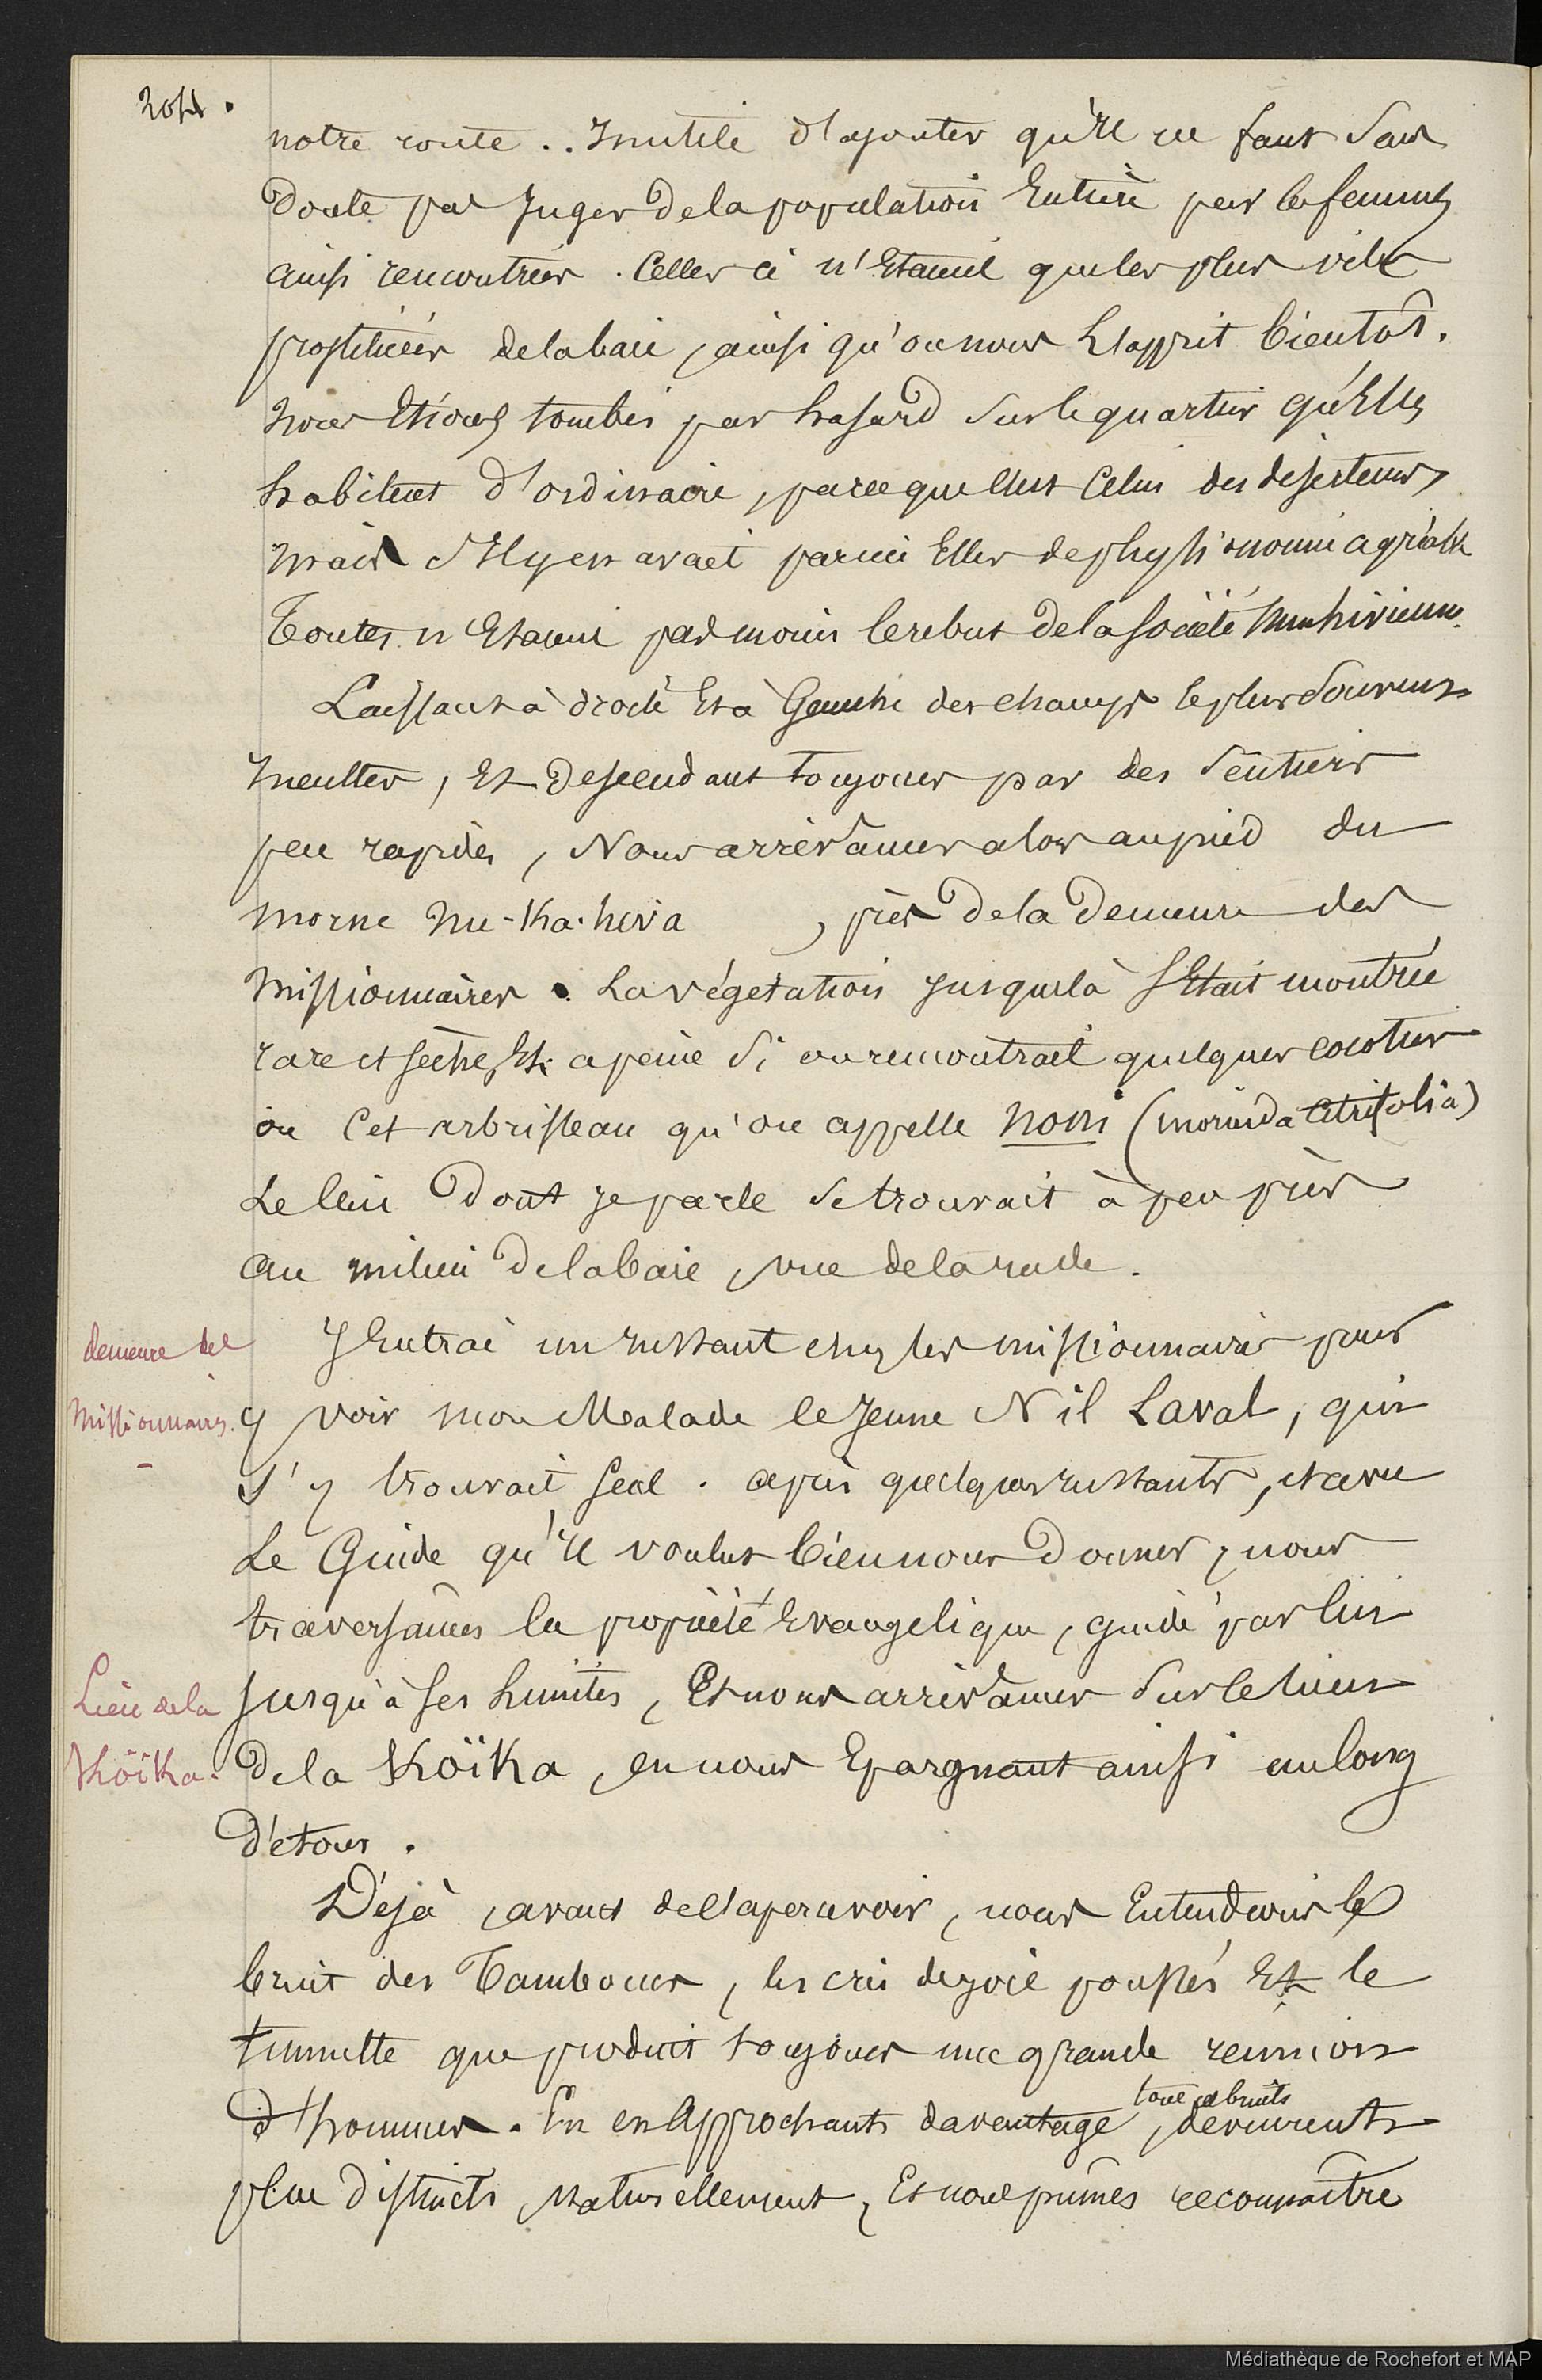 204.
notre route .. Inutile d'ajouter qu'il ne faut sans
doute pas juger de la population Entière par les femmes
ainsi rencontrées. Celles ci n'Etaient que les plus viles
prostituées de la baie, ainsi qu'on nous l'apprit bientôt.
nous Etions tombés par hasard sur le quartier qu'Elles
habitent d'ordinaire, parceque c'est celui des deserteurs,
mais s'Il y en avait parmi Elles de physionomie agréable
Toutes n'Etaient pas moins le rebut de la Société Nuuhivienne.
Laissant à droite Et à Gauche des champs le plus souvent
Incultes, Et descendant toujours par des sentiers
peu rapides, Nous arrivâmes alors au pied du
morne Nu-Ka-hiva , près de la Demeure des
Missionnaires. La végetation jusque là s'Etait montrée
rare et sèche, Et à peine si on rencontrait quelques cocotiers
ou cet arbrisseau qu'on appelle noni (morinda citrifolia)
Le lieu dont je parle se trouvait à peu près
au milieu de la baie, vue de la rade.
demeure des
Missionnaires.
J'Entrai un instant chez les missionnaires pour
y voir mon Malade le Jeune Nil Laval, qui
s'y trouvait seul. après quelques instants, et avec
Le Guide qu'il voulut bien nous donner, nous
traversâmes la propriété Evangelique, guidé par lui
Lieu de la
Khoïka.
jusqu'à ses limites, Et nous arrivâmes sur le lieu
de la Khoïka, en nous Epargnant ainsi un long
détour.
Déjà, avant de l'apercevoir, nous Entendions le
bruit des Tambours, les cris de joie poussés Et le
tumulte que produit toujours une grande reunion
d'hommes. En en approchant davantage, tous ces bruits devinrent
plus distincts naturellement, Et nous pûmes reconnaître
Médiathèque de Rochefort et MAP